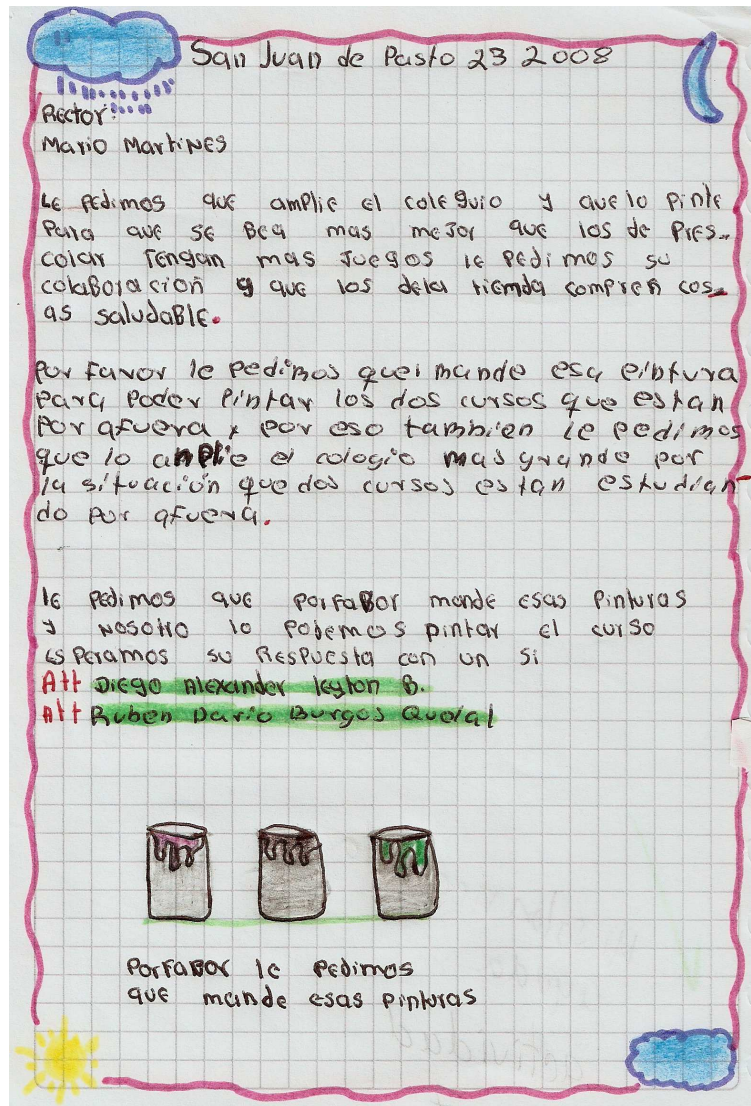 San Juan de Pasto 23 2008
Rector:
Mario Martines
Le pedimos que amplie el coleguio y que lo pinte
para que se bea mas mejor que los de pres-
colar Tengan mas Juegos le pedimos su
colaboracion y que los dela tiemda compren cos-
as saludable.
Por favor le pedimos quei mande esa pintura
para poder pintar los dos cursos que estan
por afuera y por eso tambien le pedimos
que lo amplie el cologio mas grande por
la situación que dos cursos estan estudian-
do por afuera.
le pedimos que porfabor mande esas pinturas
y nosotro lo podemos pintar el curso
esperamos su Respuesta con un si
Att Diego Alexander leyton B.
Att Ruben Dario Burgos Quelal
Porfabor le pedimos
que mande esas pinturas